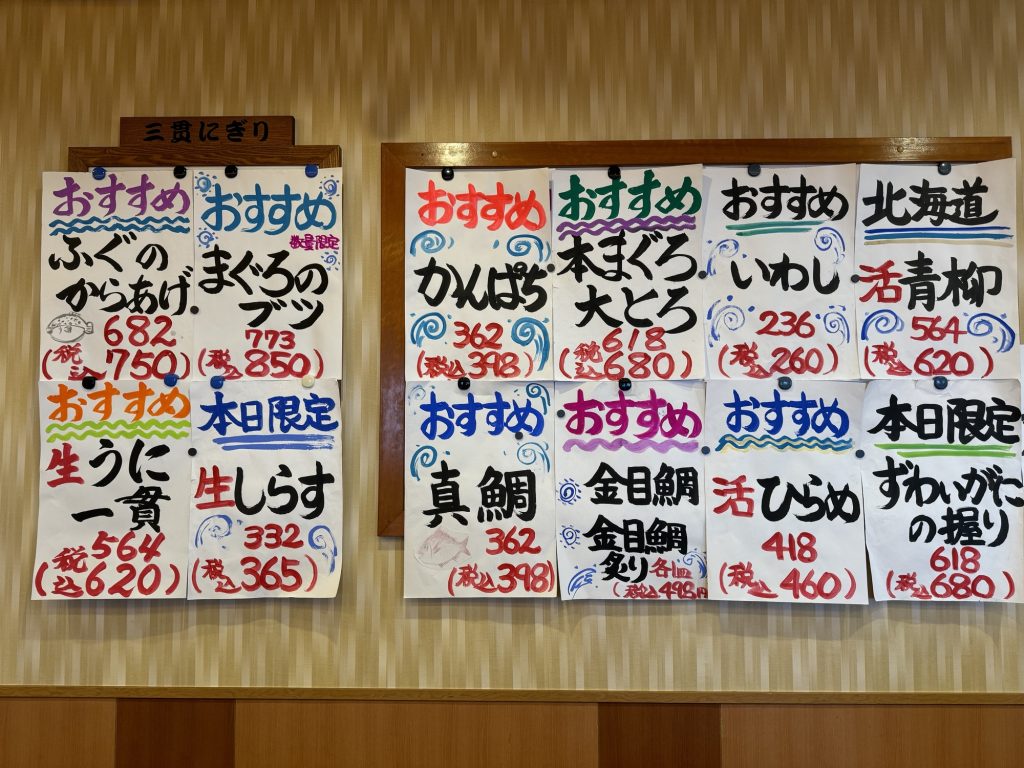 三貫にぎり
おすすめ
ふぐの
からあげ
682
(税込750)
おすすめ
数量限定
まぐろの
ブツ
773
(税込850)
おすすめ
かんぱち
362
(税込398)
おすすめ
本まぐろ
大とろ
618
(税込680)
おすすめ
いわし
236
(税込260)
北海道
活青柳
564
(税込620)
おすすめ
生うに
一貫
564
(税込620)
本日限定
生しらす
332
(税込365)
おすすめ
真鯛
362
(税込398)
おすすめ
金目鯛
金目鯛
炙り 各1皿
(税込498円
おすすめ
活ひらめ
418
(税込460)
本日限定
ずわいがに
の握り
618
(税込680)